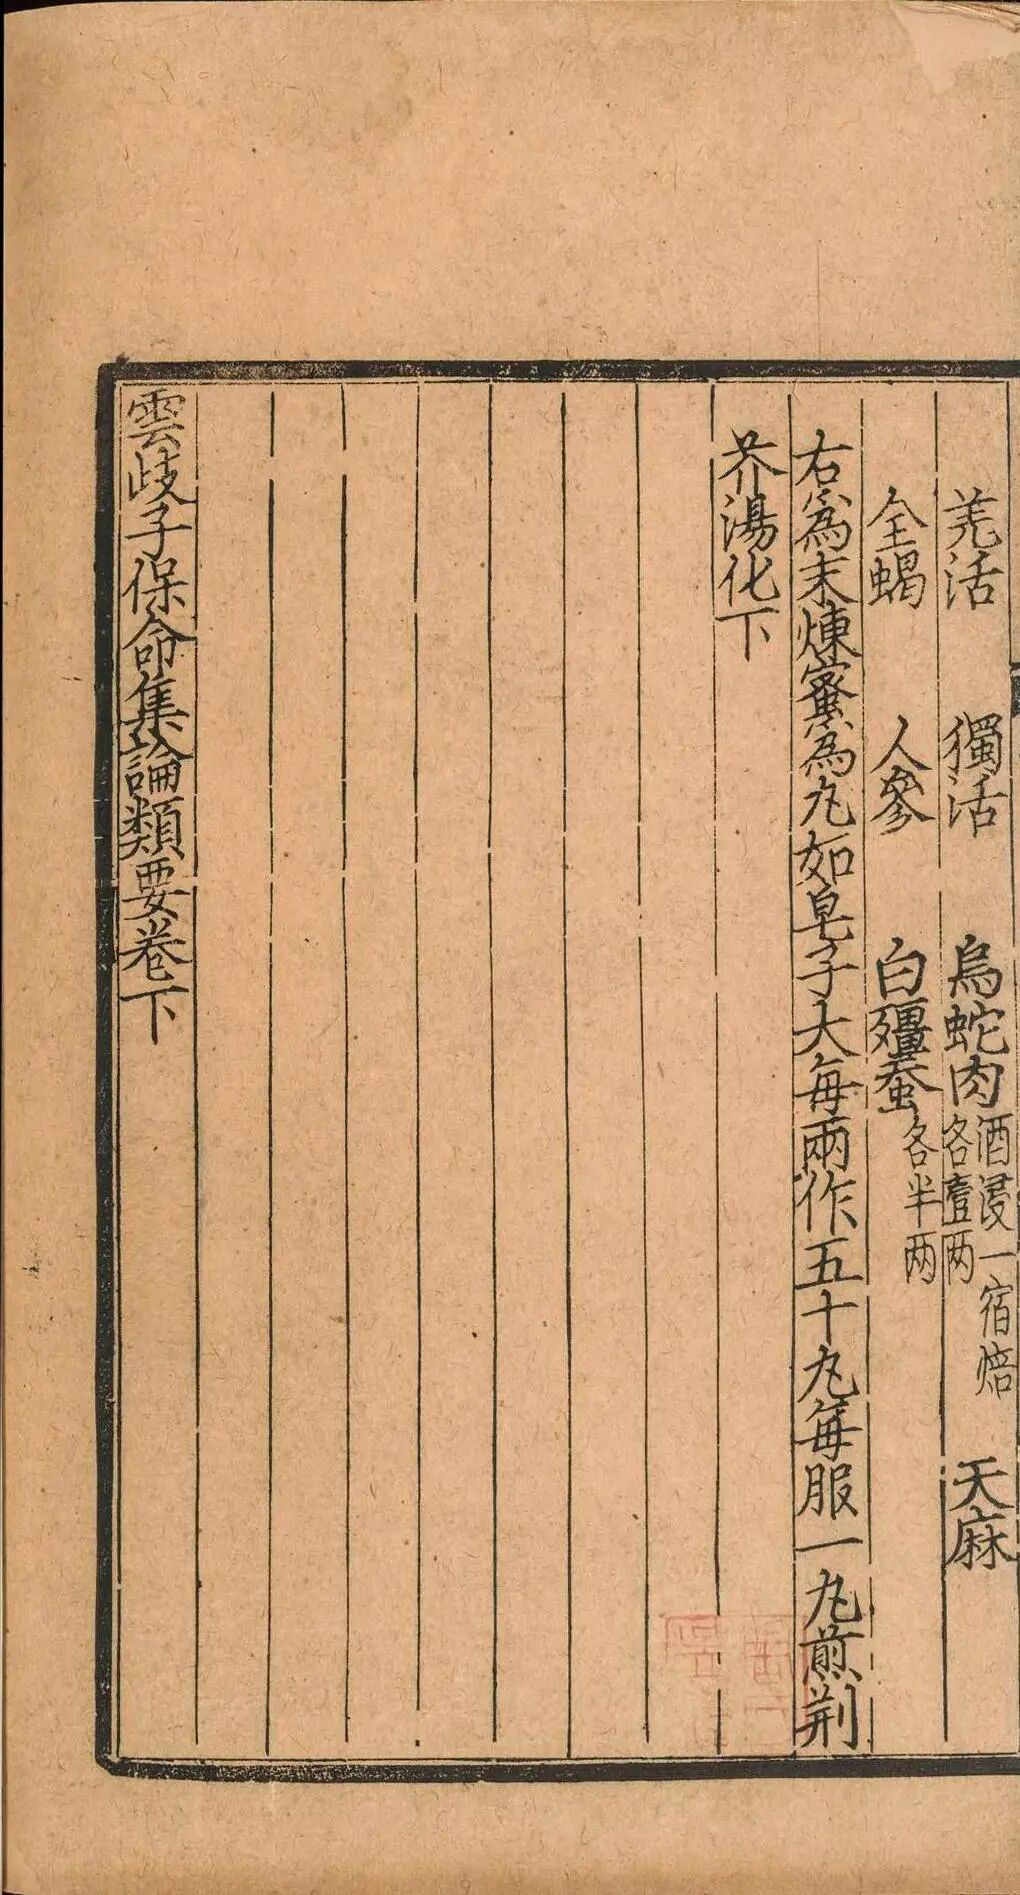 羗活　獨活　烏蛇肉酒浸一宿焙各壹两　天麻
全蝎　人參　白殭蚕各半两
右為末煉蜜為丸如皂子大每兩作五十丸每服一丸煎荆
芥湯化下
雲岐子保命集論類要卷下